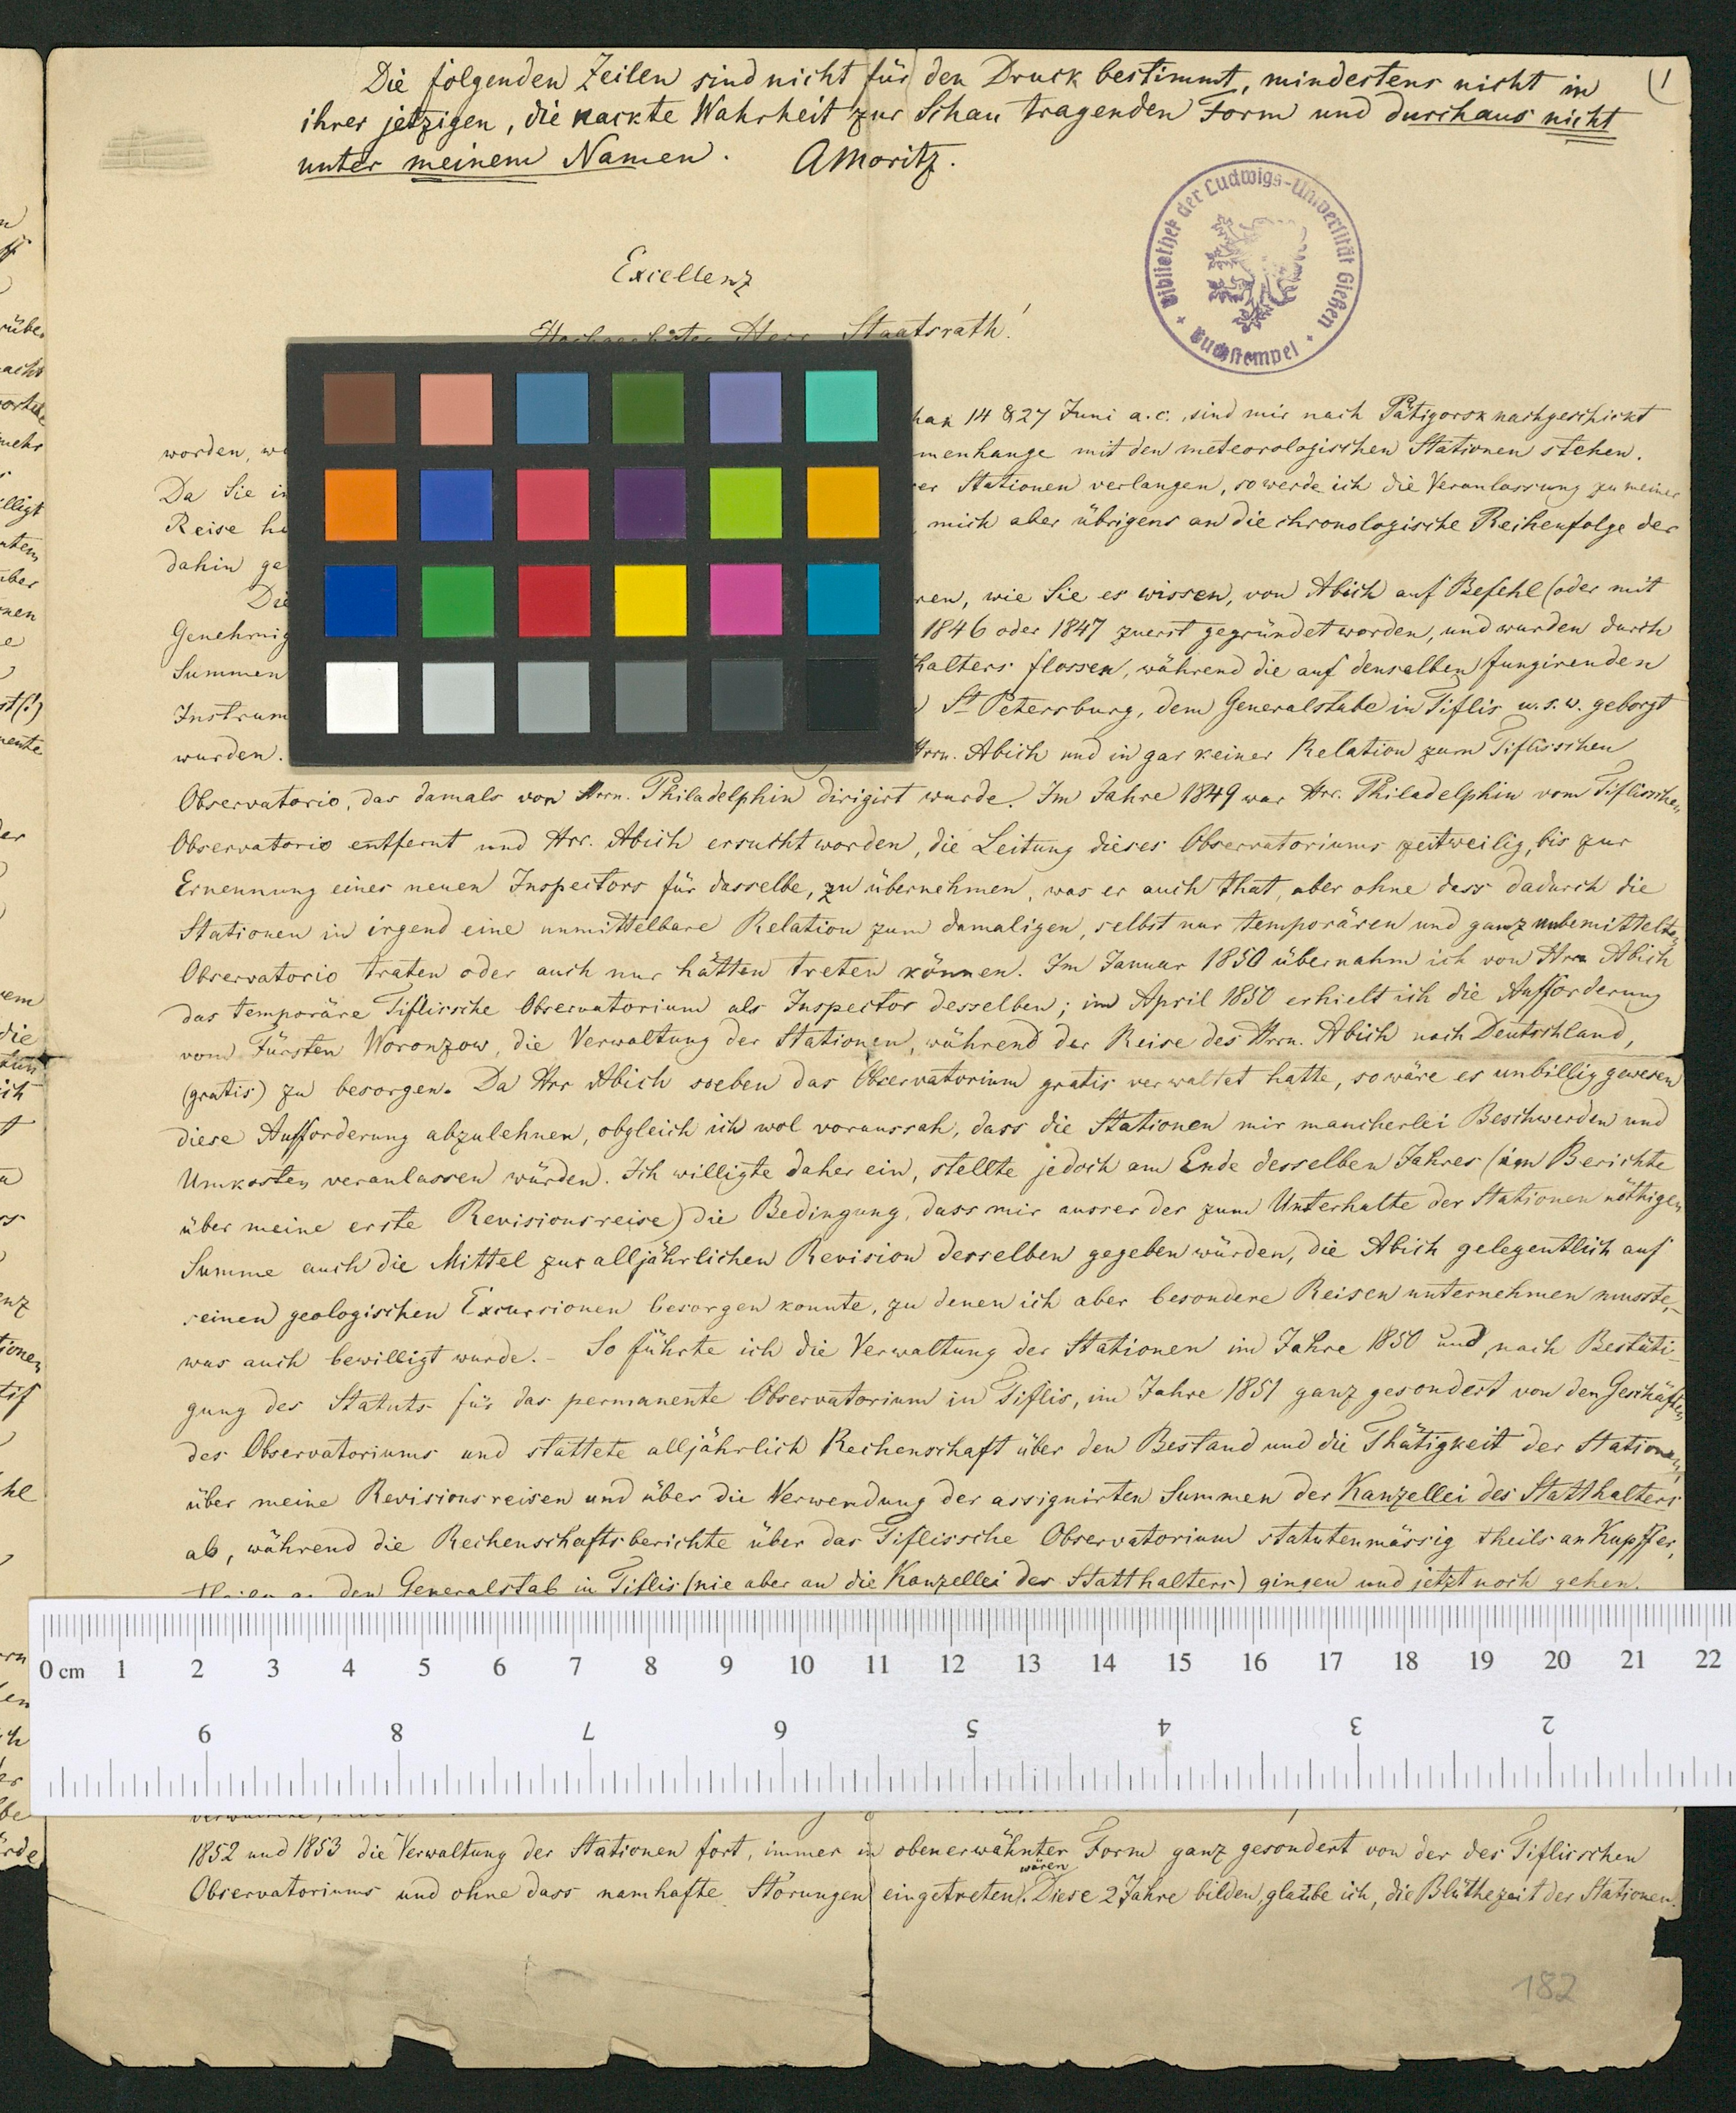 Die folgenden Zeilen sind nicht für den Druck bestimmt, mindestens nicht in
(1
ihrer jetzigen, die nackte Wahrheit zur Schau tragenden Form und durchaus nicht
unter meinem Namen. AMoritz.
Bibliothek der Ludwigs-Universität Gießen
Buchstempel
Excellenz
Hochgeehrter Herr Staatsrath!
14 & 27 Juni a.c., sind mir nach Pätigorsk nachgeschickt
worden, menhange mit den meteorologischen Stationen stehen.
Da Sie Stationen verlangen, so werde ich die Veranlassung zu meiner
Reise mich aber übrigens an die chronologische Reihenfolge der
dahin
wie Sie es wissen, von Abich auf Befehl (oder mit
Genehmig 1846 oder 1847 zuerst gegründet worden, und wurden durch
Summen halters flossen, während die auf denselben fungirenden
Instrum St Petersburg, dem Generalstabe in Tiflis u.s.w. geborgt
wurden. Hrrn. Abich und in gar keiner Relation zum Tiflisschen
Observatorio, das damals von Hrrn. Philadelphin dirigirt wurde. Im Jahre 1849 war Hrr. Philadelphin vom Tiflisschen
Observatorio entfernt und Hrr. Abich ersucht worden, die Leitung dieses Observatoriums zeitweilig, bis zur
Ernennung eines neuen Inspectors für dasselbe, zu übernehmen, was er auch that, aber ohne dass dadurch die
Stationen in irgend eine unmittelbare Relation zum damaligen, selbst nur temporären und ganz unbemittelten
Observatorio traten oder auch nur hätten treten können. Im Januar 1850 übernahm ich von Hrn Abich
das temporäre Tiflissche Observatorium als Inspector desselben; im April 1850 erhielt ich die Aufforderung
vom Fürsten Woronzow, die Verwaltung der Stationen, während der Reise des Hrrn. Abich nach Deutschland,
(gratis) zu besorgen. Da Hrr Abich soeben das Observatorium gratis verwaltet hatte, so wäre es unbillig gewesen
diese Aufforderung abzulehnen, obgleich ich wol voraussah, dass die Stationen mir mancherlei Beschwerden und
Umkosten veranlassen würden. Ich willigte daher ein, stellte jedoch am Ende desselben Jahres (im Berichte
über meine erste Revisionsreise) die Bedingung, dass mir ausser der zum Unterhalte der Stationen nöthigen
Summe auch die Mittel zur alljährlichen Revision derselben gegeben würden, die Abich gelegentlich auf
seinen geologischen Excursionen besorgen konnte, zu denen ich aber besondere Reisen unternehmen musste,–
was auch bewilligt wurde. – So führte ich die Verwaltung der Stationen im Jahre 1850 und, nach Bestäti-
gung des Statuts für das permanente Observatorium in Tiflis, im Jahre 1851 ganz gesondert von den Geschäften
des Observatoriums und stattete alljährlich Rechenschaft über den Bestand und die Thätigkeit der Stationen,
über meine Revisionsreisen und über die Verwendung der assignirten Summen der Kanzellei des Statthalters
ab, während die Rechenschaftsberichte über das Tiflissche Observatorium statutenmässig theils an Kupffer,
theils an den Generalstab in Tiflis (nie aber an die Kanzellei des Statthalters) gingen und jetzt noch gehen.
0 cm 1 2 3 4 5 6 7 8 9 10 11 12 13 14 15 16 17 18 19 20 21 22
9 8 7 6 5 4 3 2
1852 und 1853 die Verwaltung der Stationen fort, immer in obenerwähnter Form ganz gesondert von der des Tiflisschen
wären
Observatoriums und ohne dass namhafte Störungen eingetreten. Diese 2 Jahre bilden, glaube ich, die Blüthezeit der Stationen.
182